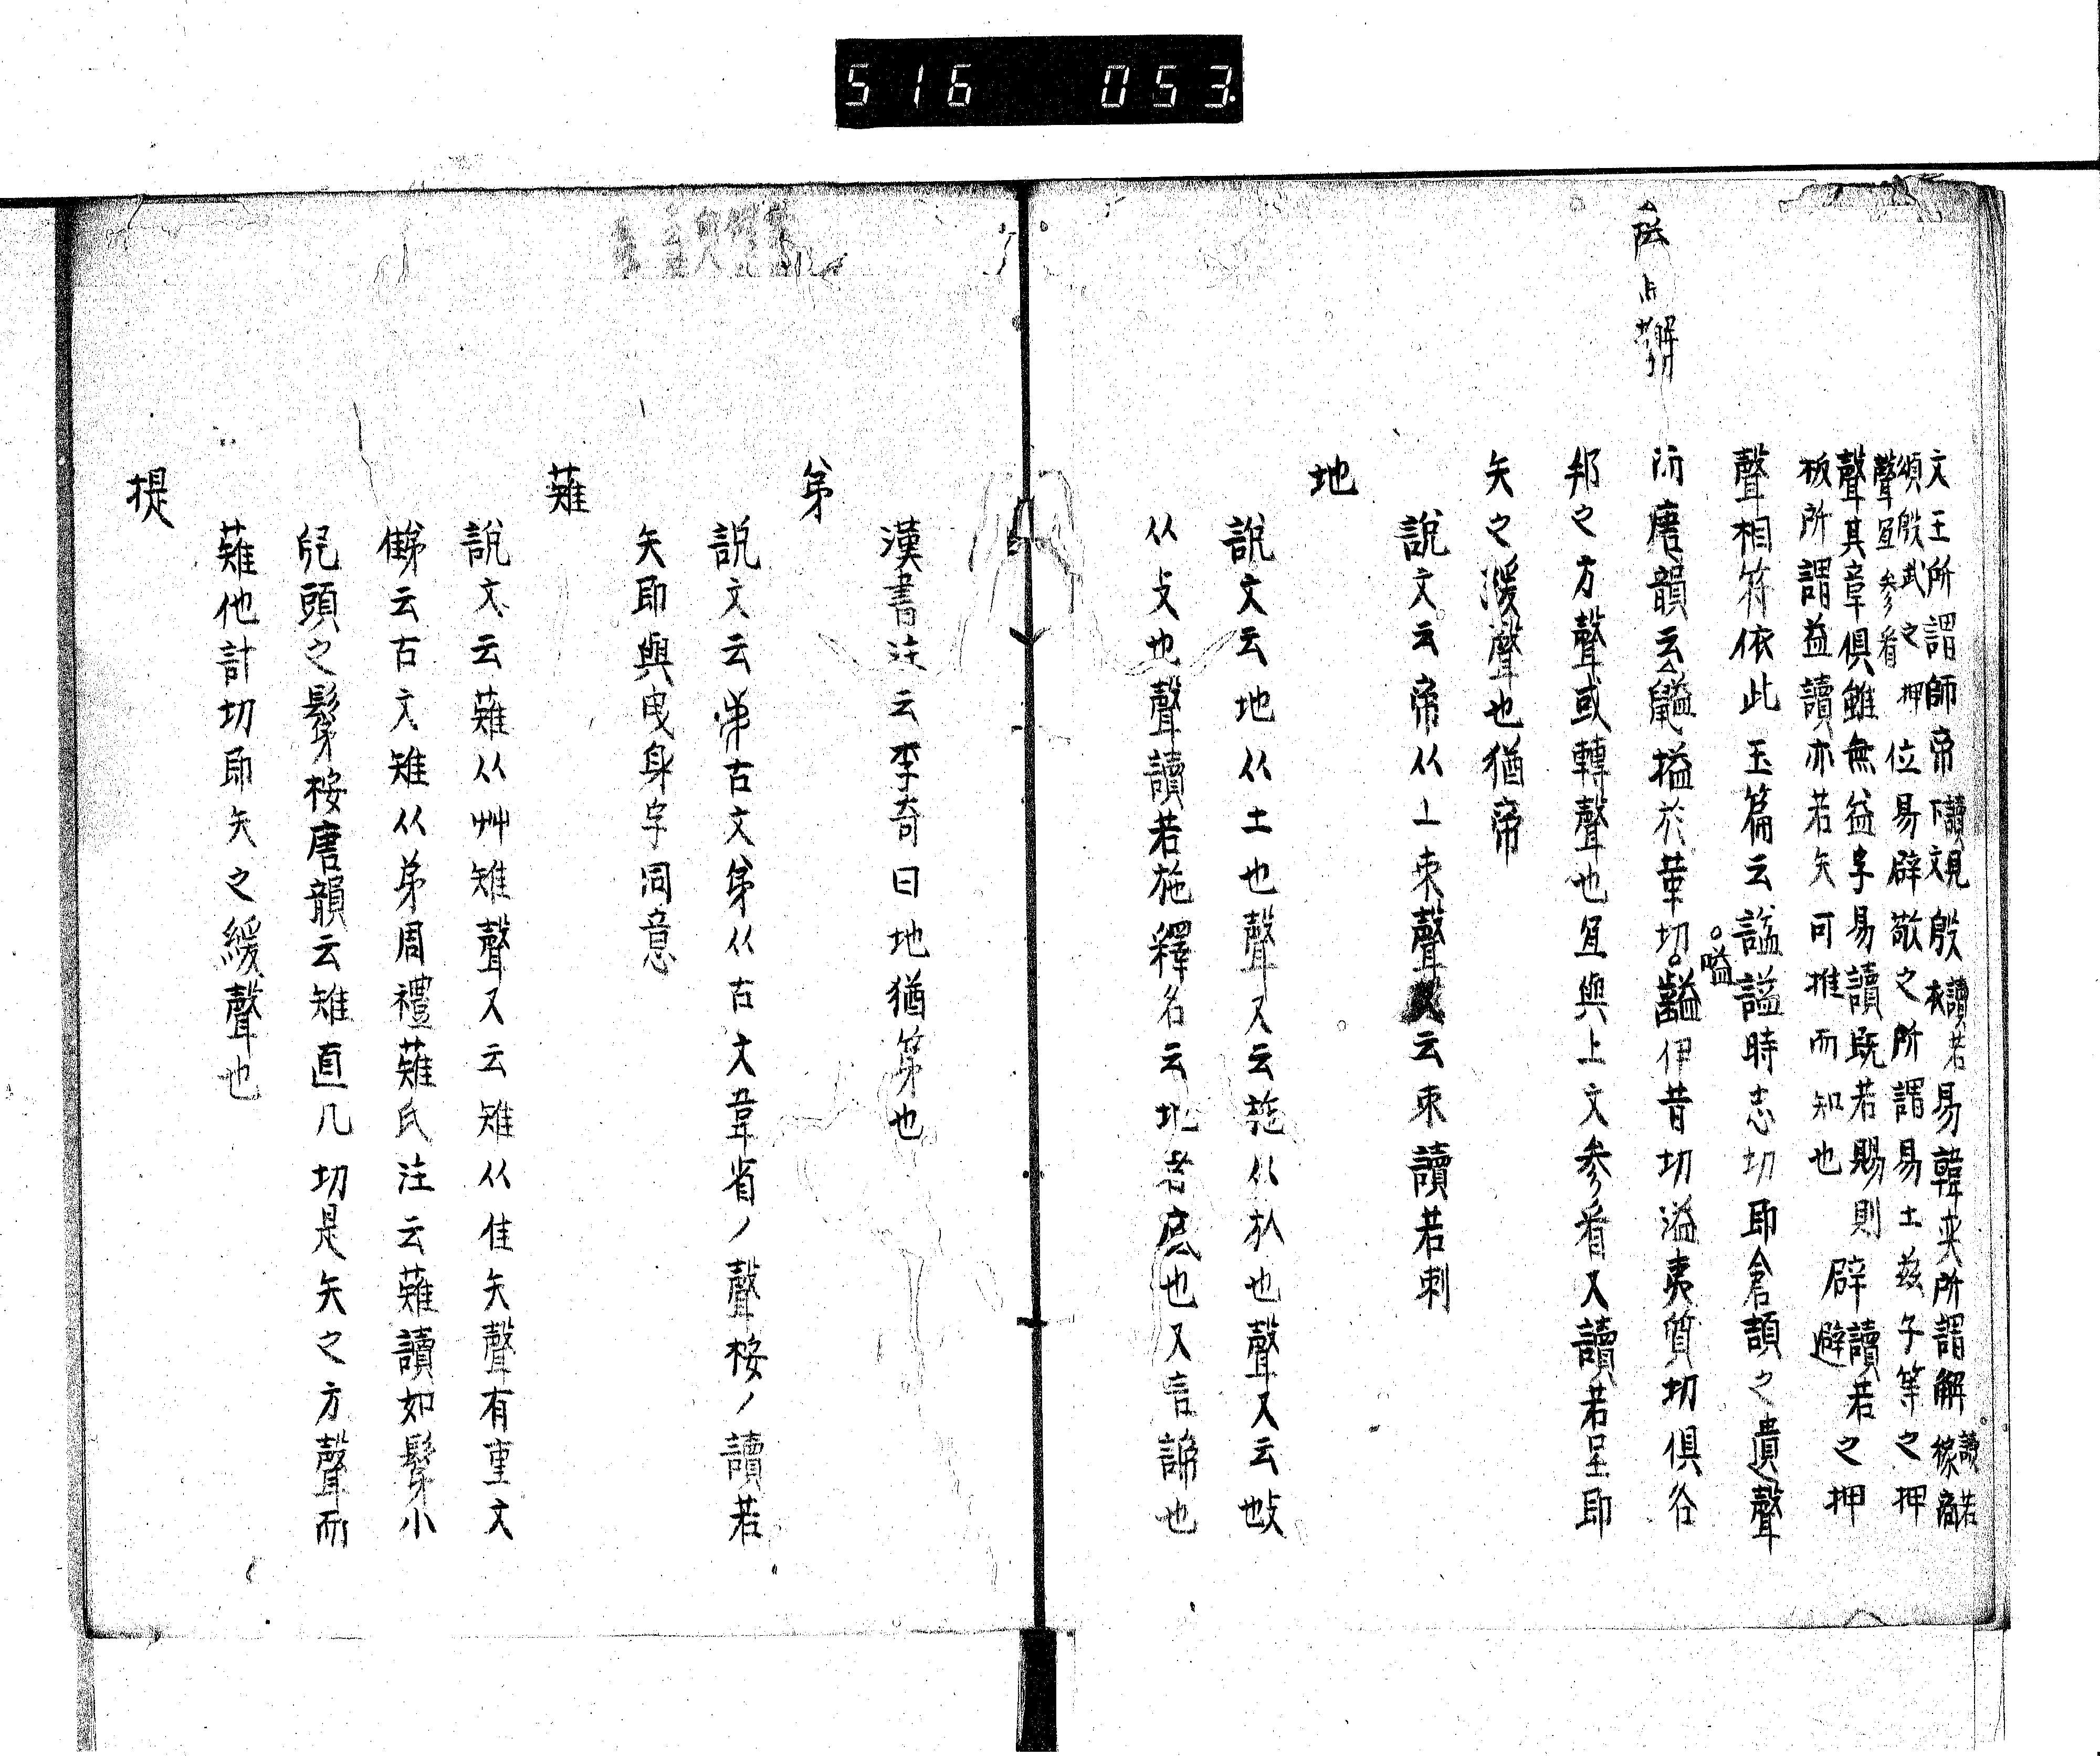 516 053.
文王所謂師帝讀下文見殷讀若衣易韓夾所謂解讀若
頌殷武之押位易辟敬之所謂易土玆子等之押
聲宜參看
聲其章俱雖無益字易讀既若賜則辟讀若避之押
板所謂益讀亦若矢可推而知也
聲相符依此玉篇云諡謚時志切即倉頡之遺聲
。嗌
所唐韻云鼶搤於革切。齸伊昔切溢夷質切俱谷
邦之方聲或轉聲也宜與上文參看又讀若呈即
矢之緩聲也猶帝
說文云帝从丄朿聲又云朿讀若刺
地
說文云地从土也聲又云葹从㫃也聲又云䢊
从攴也聲讀若施釋名云地者底也又言諦也
漢書注云李奇曰地猶第也
弟
說文云弟古文弟从古文韋省丿聲桉丿讀若
矢即與曳身字同意
薙
說文云薙从艸雉聲又云雉从隹矢聲有重文
云古文雉从弟周禮薙氏注云薙讀如鬀小
兒頭之鬀桉唐韻云雉直几切是矢之方聲而
薙他計切即矢之緩聲也
提